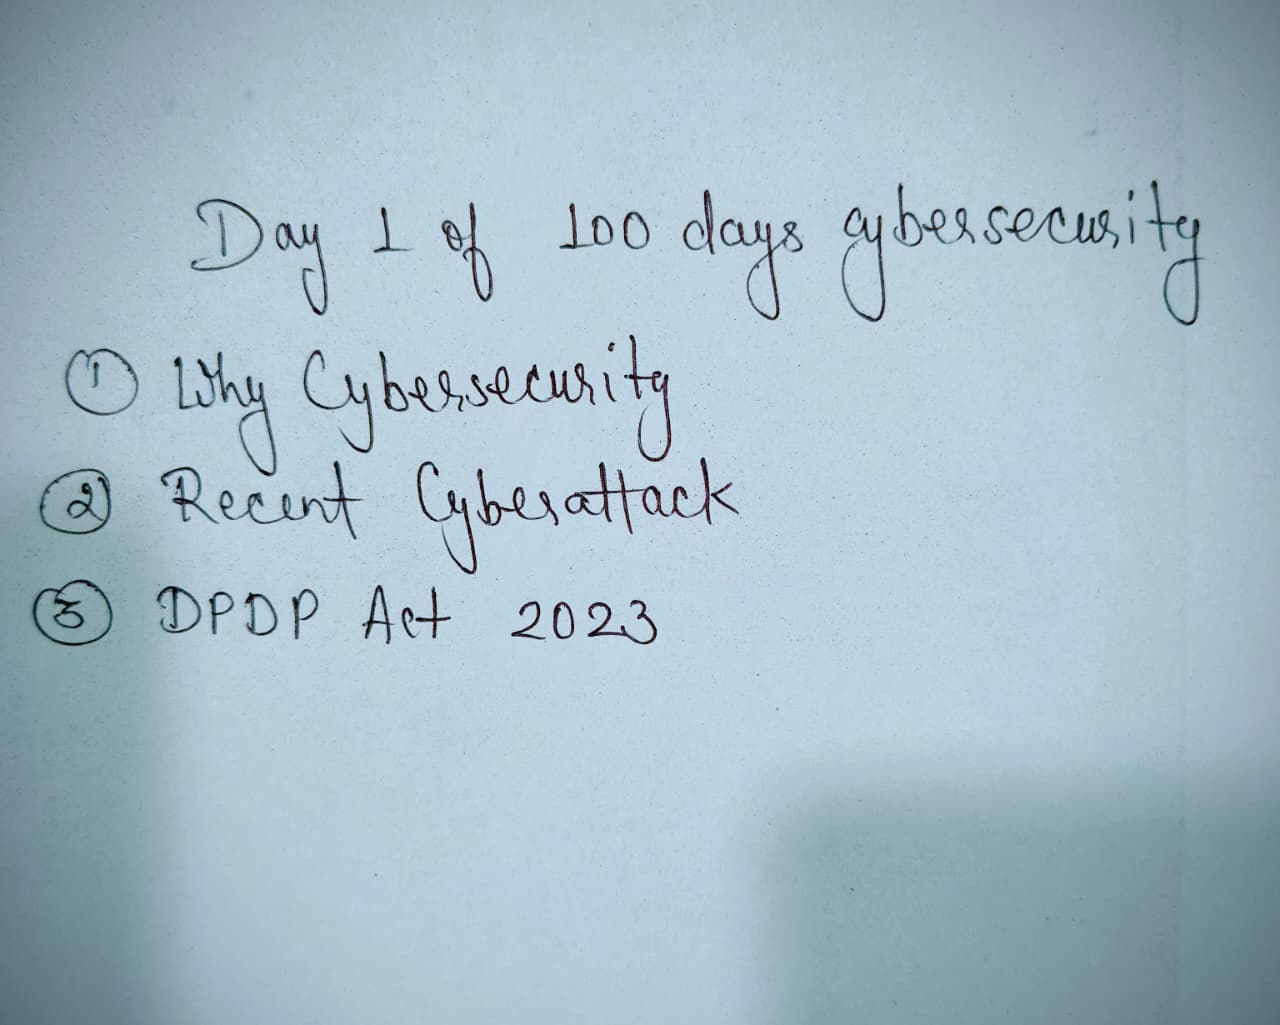 Day 1 of 100 days cybersecurity
① Why Cybersecurity
② Recent Cyberattack
③ DPDP Act 2023